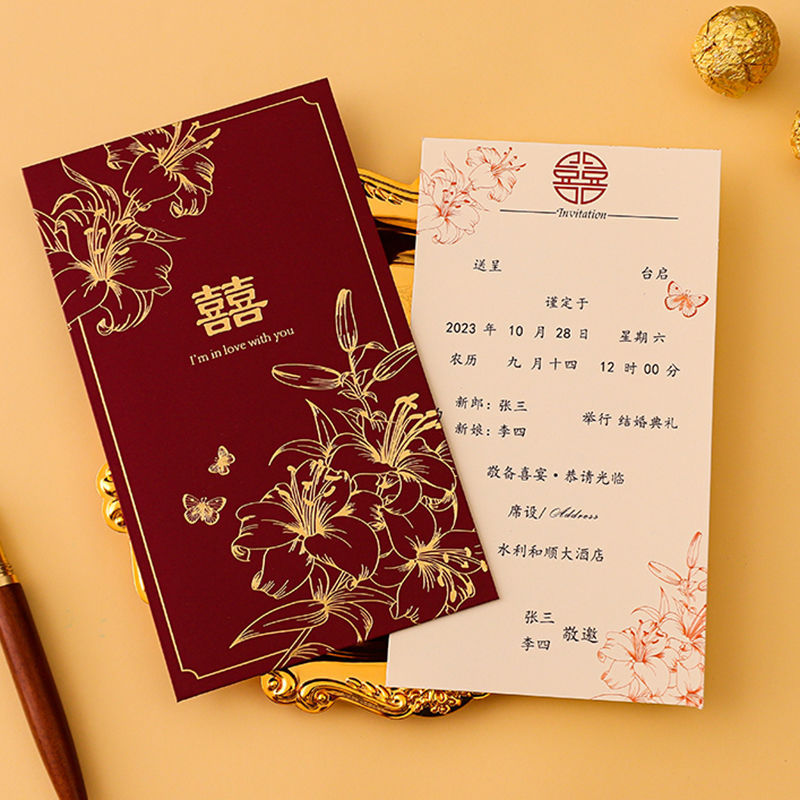 囍
I'm in love with you
囍
Invitation
送呈 台启
谨定于
2023 年 10 月 28 日 星期 六
农历 九 月十四 12 时 00 分
新郎：张三
新娘：李四
举行 结婚典礼
敬备喜宴·恭请光临
席设/ Address
水利和顺大酒店
张三
李四
敬邀